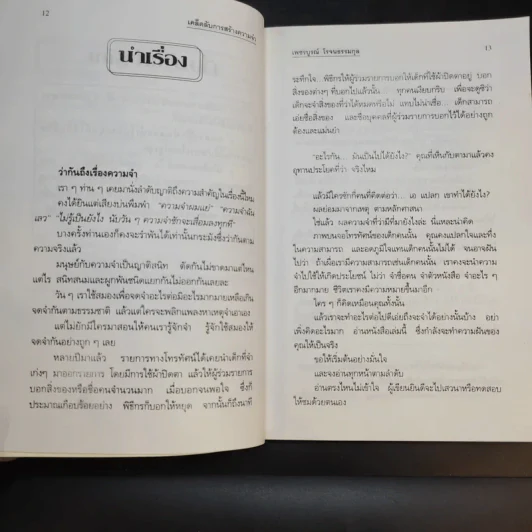 12
เคล็ดลับการสร้างความจำ
นำเรื่อง
ว่ากันถึงเรื่องความจำ
เรา ๆ ท่าน ๆ เคยมานั่งลำดับญาติถึงความสำคัญในเรื่องนี้ไหม
คงได้ยินแต่เสียงบ่นพึมพำ "ความจำผมแย่" "ความจำฉัน
เลว" "ไม่รู้เป็นยังไง นับวัน ๆ ความจำชักจะเสื่อมลงทุกที"
บางครั้งท่านเองก็คงจะรำพันได้เท่านั้นกระมังซึ่งว่ากันตาม
ความจริงแล้ว
มนุษย์กับความจำเป็นญาติสนิท ตัดกันไม่ขาดมาแต่ไหน
แต่ไร สนิทสนมและผูกพันชนิดแยกกันไม่ออกกันเลยละ
วัน ๆ เราใช้สมองเพื่อจดจำอะไรต่อมิอะไรมากมายเหลือเกิน
จดจำกันตามธรรมชาติ แล้วแต่ใครจะพลิกแพลงหาเหตุจำเอาเอง
แต่ไม่ยักมีใครมาสอนให้คนเรารู้จักจำ รู้จักใช้สมองให้
จดจำกันอย่างถูก ๆ เลย
หลายปีมาแล้ว รายการทางโทรทัศน์ได้เคยนำเด็กที่จำ
เก่งๆ มาออกรายการ โดยมีการใช้ผ้าปิดตา แล้วให้ผู้ร่วมรายการ
บอกสิ่งของหรือชื่อคนจำนวนมาก เมื่อบอกจนพอใจ ซึ่งก็
ประมาณเกือบร้อยอย่าง พิธีกรก็บอกให้หยุด จากนั้นก็ถึงนาที
เพชรบูรณ์ โรจนธรรมกุล
13
ระทึกใจ พิธีกรให้ผู้ร่วมรายการบอกให้เด็กที่ใช้ผ้าปิดตาอยู่ บอก
สิ่งของต่างๆ ที่บอกไปแล้วนั้น ทุกคนเงียบกริบ เพื่อจะดูซิว่า
เด็กจะจำสิ่งของที่ว่าได้หมดหรือไม่ แทบไม่น่าเชื่อ... เด็กสามารถ
เอ่ยชื่อสิ่งของ และชื่อบุคคลที่ผู้ร่วมรายการบอกไว้ได้อย่างถูก
ต้องและแม่นยำ
"อะไรกัน... มันเป็นไปได้ยังไง?" คุณที่เห็นกับตามาแล้วคง
อุทานประโยคที่ว่า จริงไหม
แล้วมีใครซักกี่คนที่คิดต่อว่า... เอ แปลก เขาทำได้ยังไง?
ผลย่อมมาจากเหตุ ตามหลักศาสนา
ใช่แล้ว ผลความจำที่ว่ามีที่มายังไงล่ะ นี่แหละน่าคิด
ภาพบนจอโทรทัศน์ของเด็กคนนั้น คุณคงแปลกใจและทึ่ง
ในความสามารถ และอดภูมิใจแทนเด็กคนนั้นไม่ได้ จนอาจฝัน
ไปว่า ถ้าเผื่อเรามีความสามารถเช่นเด็กคนนั้น เราคงจะนำความ
จำไปใช้ให้เกิดประโยชน์ ไม่ว่า จำชื่อคน จำตัวหนังสือ จำอะไร ๆ
อีกมากมาย ชีวิตเราคงมีความหมายขึ้นมาอีก
ใคร ๆ ก็คิดเหมือนคุณทั้งนั้น
แล้วเราจะทำอะไรต่อไปดีเล่าถึงจะจำได้อย่างนั้นบ้าง อย่า
เพิ่งคิดอะไรมาก อ่านหนังสือเล่มนี้ ซึ่งกำลังจะทำความฝันของ
คุณให้เป็นจริง
ขอให้เริ่มต้นอย่างมั่นใจ
และจงอ่านทุกหน้าตามลำดับ
อ่านตรงไหนไม่เข้าใจ ผู้เขียนยินดีจะไปเสวนาหรือทดสอบ
ให้ชมด้วยตนเอง